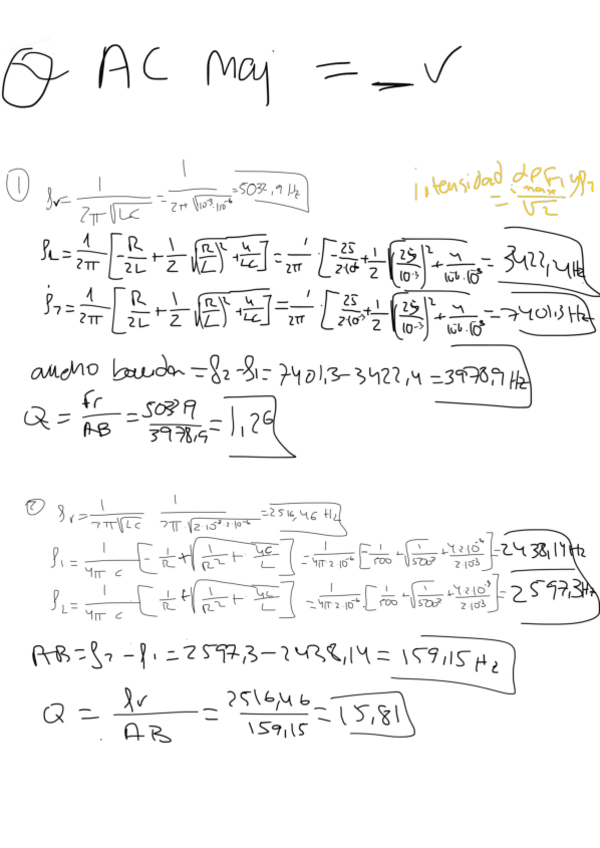 Q AC maj = _ V
① fr = 1/(2π√LC) = 1/(2π√10⁻³·10⁻⁶) = 5032,9 Hz
intensidad de F₁ y F₂ = i max/√2
f₁ = 1/2π [-R/2L + 1/2 √(R/L)² + 4/LC] = 1/2π · [-25/2·10⁻³ + 1/2 √(25/10⁻³)² + 4/10⁻⁶·10⁻³] = 3422,4 Hz
f₂ = 1/2π [R/2L + 1/2 √(R/L)² + 4/LC] = 1/2π · [25/2·10⁻³ + 1/2 √(25/10⁻³)² + 4/10⁻⁶·10⁻³] = 7401,3 Hz
ancho banda = f₂ - f₁ = 7401,3 - 3422,4 = 3978,9 Hz
Q = fr/AB = 5032,9/3978,9 = 1,26
② fr = 1/(2π√LC) 1/(2π√2·10⁻³·2·10⁻⁶) = 2516,46 Hz
f₁ = 1/4π C [-1/R + √1/R² + 4C/L] = 1/4π·2·10⁻⁶ [-1/500 + √1/500² + 4·2·10⁻⁶/2·10⁻³] = 2438,14 Hz
f₂ = 1/4π C [1/R + √1/R² + 4C/L] = 1/4π·2·10⁻⁶ · [1/500 + √1/500² + 4·2·10⁻⁶/2·10⁻³] = 2597,3 Hz
AB = f₂ - f₁ = 2597,3 - 2438,14 = 159,15 Hz
Q = fr/AB = 2516,46/159,15 = 15,81